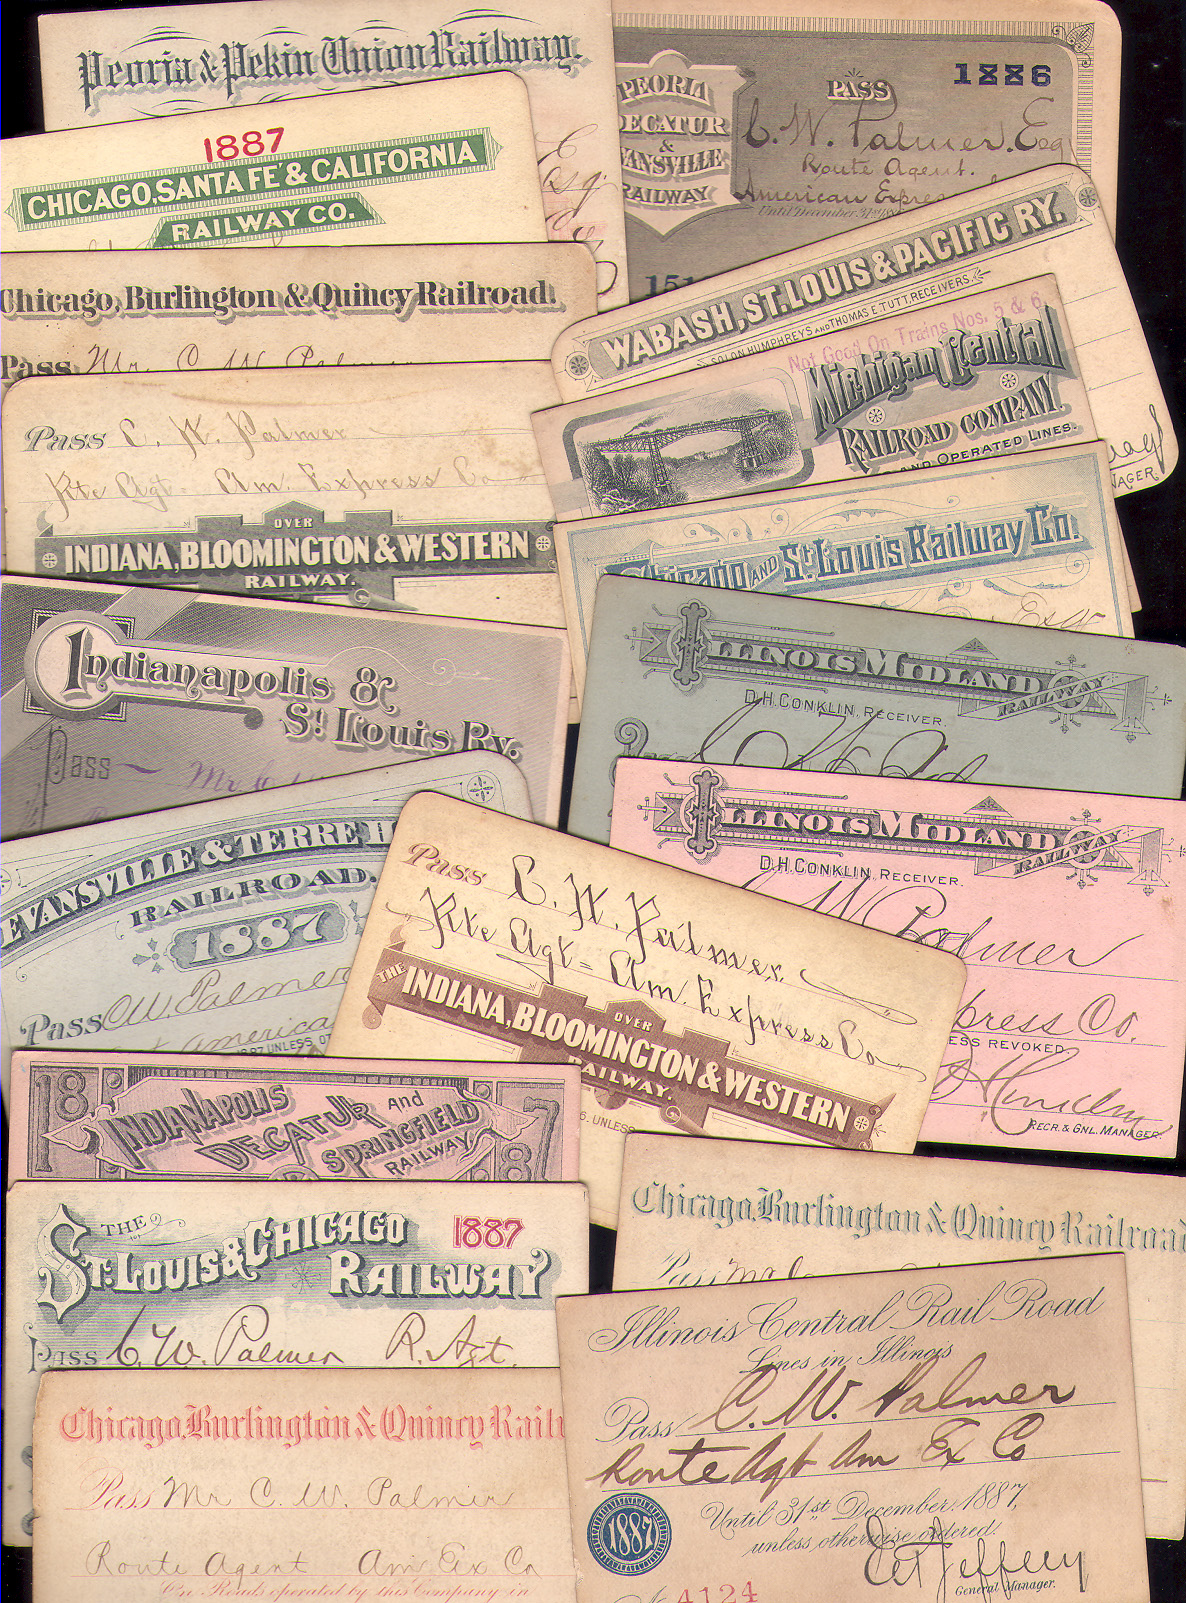 Peoria & Pekin Union Railway.
PEORIA
DECATUR
&
EVANSVILLE
RAILWAY
PASS
1886
C. W. Palmer. Esq
Route Agent.
American Expres
Until December 31st 188
151
1887
CHICAGO, SANTA FE & CALIFORNIA
RAILWAY CO.
Chicago, Burlington & Quincy Railroad.
Pass Mr. C. W. Palmer
WABASH, ST. LOUIS & PACIFIC RY.
SOLON HUMPHREYS AND THOMAS E. TUTT, RECEIVERS.
NAGER
Not Good On Trains Nos. 5 & 6.
Michigan Central
RAILROAD COMPANY.
AND OPERATED LINES.
Pass C. W. Palmer
Rte Agt. Am. Express Co.
OVER
INDIANA, BLOOMINGTON & WESTERN
RAILWAY.
Chicago AND St. Louis Railway Co.
Indianapolis &
St. Louis Ry.
Pass Mr. C.
ILLINOIS MIDLAND
RAILWAY
D.H. CONKLIN, RECEIVER.
ILLINOIS MIDLAND
RAILWAY
D.H. CONKLIN, RECEIVER.
W Palmer
press Co.
ESS REVOKED.
RECR. & GNL. MANAGER.
EVANSVILLE & TERRE H
RAILROAD.
1887
Pass C.W. Palmer
America
UNLESS OT
Pass C. W. Palmer.
Rte Agt - Am. Express Co
THE
OVER
INDIANA, BLOOMINGTON & WESTERN
RAILWAY.
6. UNLESS
1887
INDIANAPOLIS
DECATUR AND
SPRINGFIELD
RAILWAY
THE
ST. LOUIS & CHICAGO
RAILWAY
1887
Pass C. W. Palmer R. Agt.
Chicago, Burlington & Quincy Railroad
Pass Mr
Chicago, Burlington & Quincy Railr
Pass Mr C. W. Palmer
Route Agent Am Ex Co
On Roads operated by this Company in
Illinois Central Rail Road
Lines in Illinois
Pass C. W. Palmer
Route Agt Am Ex Co
Until 31st December, 1887,
unless otherwise ordered.
1887
General Manager.
4124